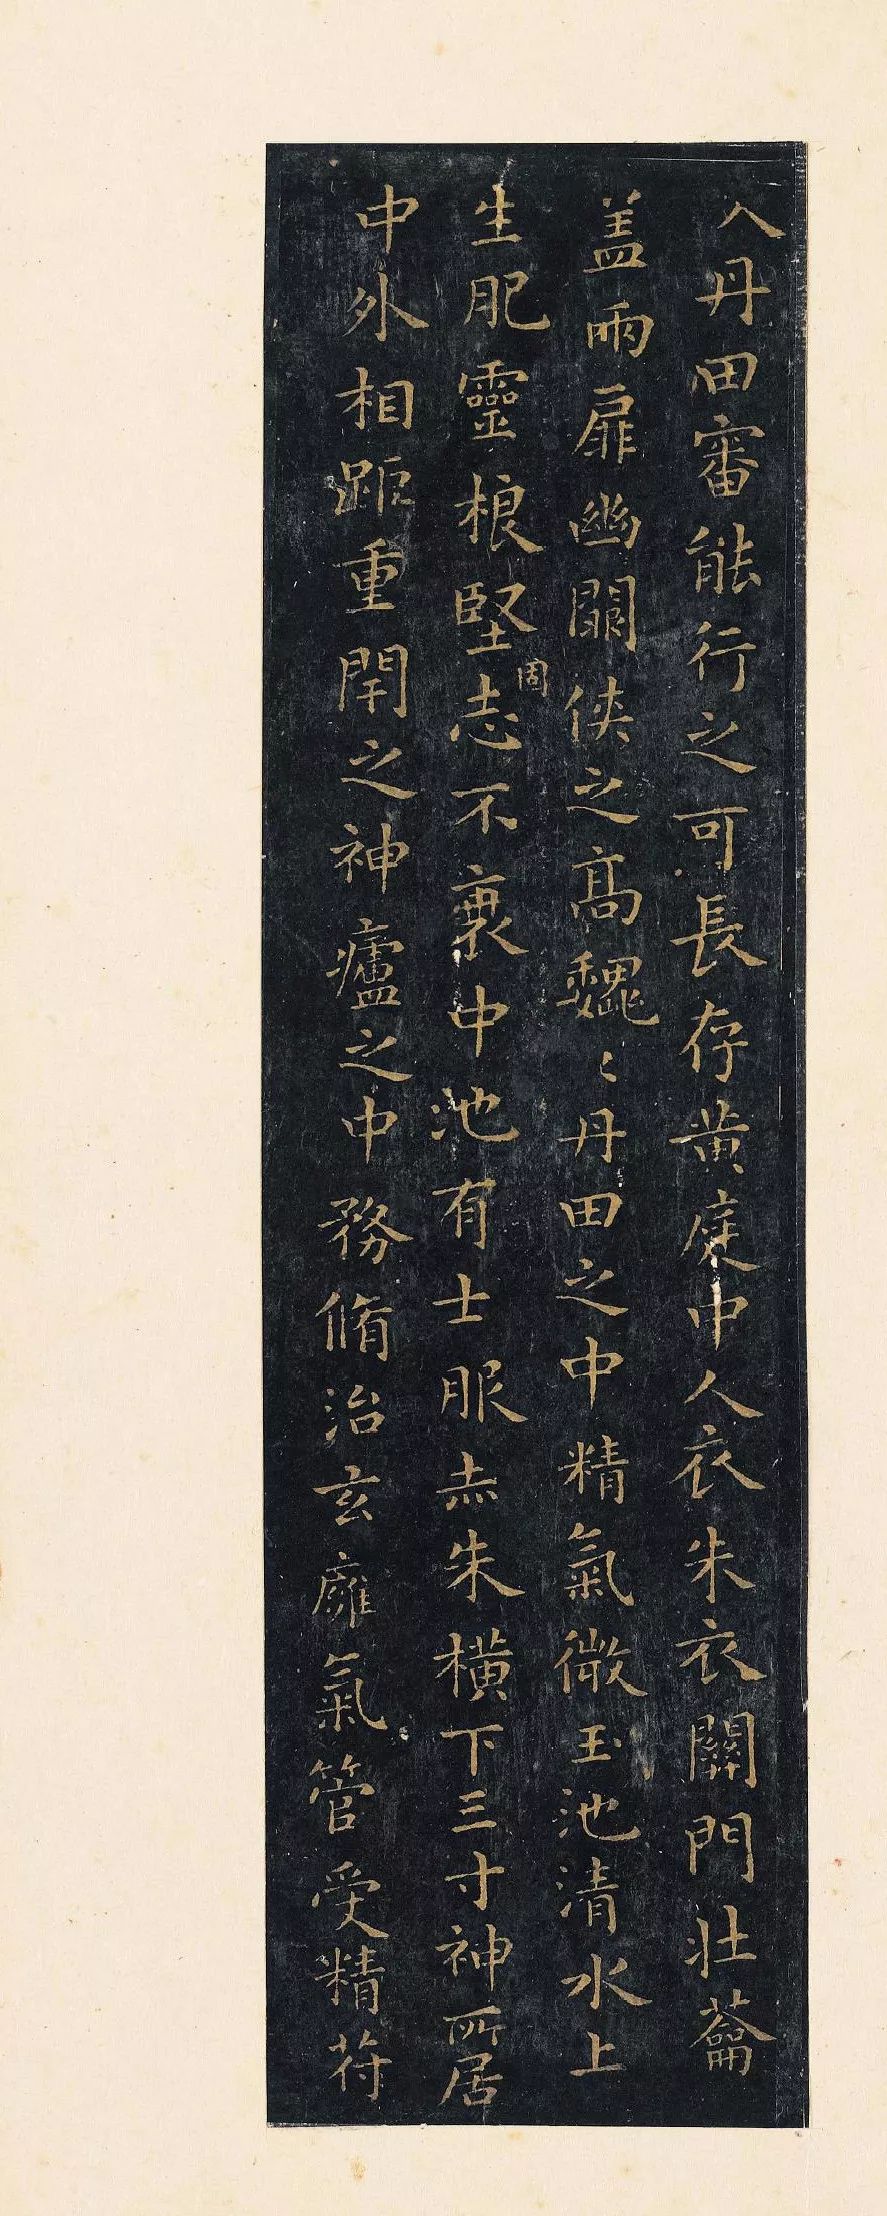 入丹田審能行之可長存黄庭中人衣朱衣關門壯蘥
盖兩扉幽闗俠之高巍〻丹田之中精氣微玉池清水上
生肥靈根堅固志不衰中池有士服赤朱橫下三寸神所居
中外相距重閇之神廬之中務脩治玄廱氣管受精苻